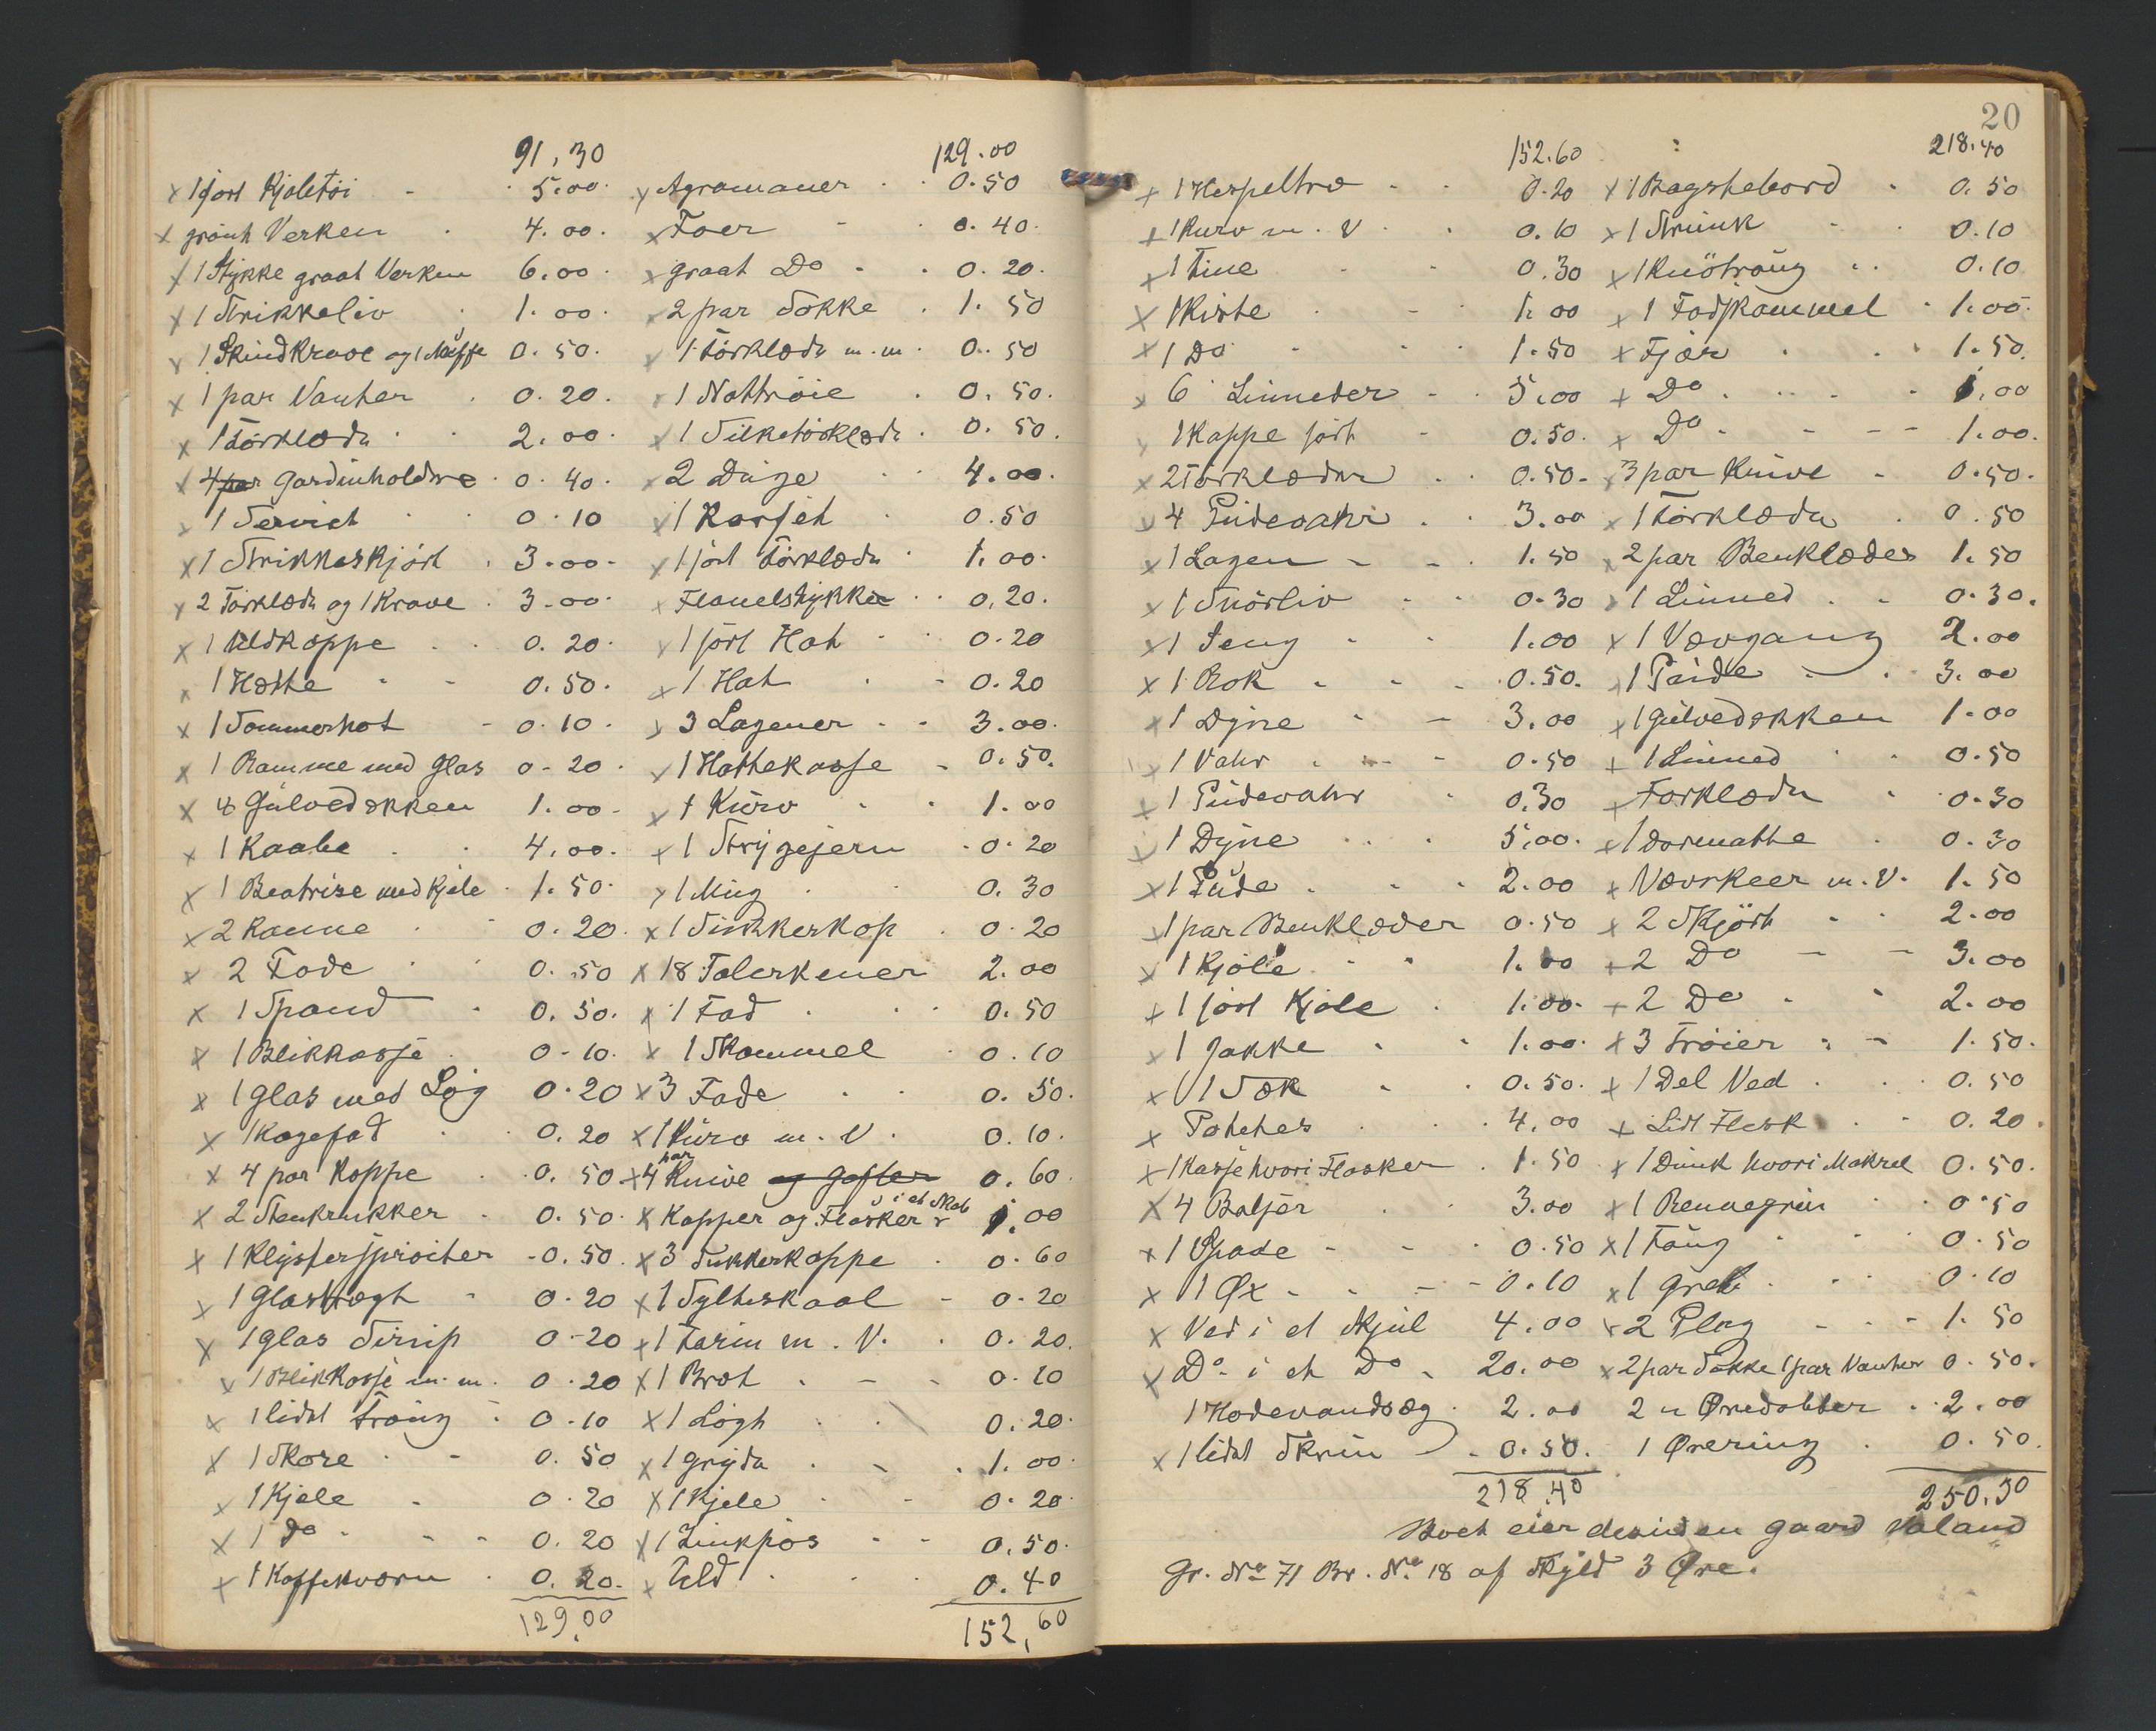 91,30
x 1 sort Kjoletöi - 5.00
x grönt Verken 4.00
x 1 Stykke graat Verken 6.00
x 1 Strikkeliv 1.00
x 1 Skindkrave og 1 Müffe 0.50
x 1 par Vanter 0.20
x 1 Törklæde 2.00
x 4 par Gardinholdere 0.40
x 1 Serviet 0.10
x 1 Strikkeskjört 3.00
x 2 Törklæde og 1 Krave 3.00
x 1 Uldkappe 0.20
x 1 Hætte 0.50
x 1 Sommerhat 0.10
x 1 Ramme med Glas 0.20
x 4 Gülvedækken 1.00
x 1 Kaabe 4.00
x 1 Beatrise med Kjole 1.50
x 2 Kanne 0.20
x 2 Fade 0.50
x 1 Spand 0.50
x 1 Blikkasse 0.10
x 1 Glas med Låg 0.20
x 1 Kagefad 0.20
x 4 par Koppe 0.50
x 2 Stenkrukker 0.50
x 1 Klystersprøiter 0.50
x 1 Glastragt 0.20
x 1 Glas Sirüp 0.20
x 1 Blikkasse m.m. 0.20
x 1 lidet Traüg 0.10
x 1 Skore 0.50
x 1 Kjele 0.20
x 1 Do 0.20
x 1 Kaffekværn 0.20
129,00
129.00
x Agramaner 0.50
x Foer 0.40
x graat Do 0.20
x 2 par Sokke 1.50
x 1 Törklæde m.m. 0.50
x 1 Nattröie 0.50
x 1 Silketörklæde 0.50
x 2 Düge 4.00
x 1 Korset 0.50
x 1 sort Törklæde 1.00
x Flanelstykker 0.20
x 1 sort Hat 0.20
x 1 Hat 0.20
x 3 Lagener 3.00
x 1 Hattekasse 0.50
x 1 Kürv 1.00
x 1 Strygejern 0.20
x 1 Müg 0.30
x 1 Sukkerkop 0.20
x 18 Talerkener 2.00
x 1 Fad 0.50
x 1 Skammel 0.10
x 3 Fade 0.50
x 1 Kürv m.V. 0.10
x 4 par Knive og Gafler 0.60
x Kopper og Flasker i et Skab 1.00
x 3 Sukkerkoppe 0.60
x 1 Sylteskaal 0.20
x 1 Farin m.V. 0.20
x 1 Bræt 0.10
x 1 Lögt 0.20
x 1 Gryde 1.00
x 1 Kjele 0.20
x 1 Zinkpøs 0.50
x Uld 0.40
152,60
20
152.60
x 1 Hespeltræ 0.20
x 1 Kurv m.V 0.10
x 1 Tine 0.30
x 1 Kiste 1.00
x 1 Do 1.50
x 6 Linneder 5.00
x 1 Kappe sort 0.50
x 2 Törklæder 0.50
x 4 Püdevahr 3.00
x 1 Lagen 1.50
x 1 Snörliv 0.30
x 1 Seng 1.00
x 1 Rok 0.50
x 1 Dyne 3.00
x 1 Vahr 0.50
x 1 Püdevahr 0.30
x 1 Dyne 5.00
x 1 Püde 2.00
x 1 par Benklæder 0.50
x 1 Kjole 1.00
x 1 sort Kjole 1.00
x 1 Jakke 1.00
x 1 Sæk 0.50
x Poteter 4.00
x 1 Kasse hvori Flasker 1.50
x 4 Baljer 3.00
x 1 Spade 0.50
x 1 Øx 0.10
x Ved i et Skjül 4.00
x Do i et Do 20.00
1 Hodevandsæg 2.00
x 1 lidet Skrin 0.50
218,40
218.40
x 1 Bagstebord 0.50
x 1 Strünk 0.10
x 1 Knötraüg 0.10
x 1 Fodskammel 1.00
x Fjær 1.50
x Do 1.00
x Do 1.00
x 3 par Knive 0.50
x 1 Törklæde 0.50
x 2 par Benklæder 1.50
x 1 Linned 0.30
x 1 Vævgang 2.00
x 1 Püde 3.00
x 1 Gülvedækken 1.00
x 1 Linned 0.50
x Forklæde 0.30
x 1 Dormatte 0.30
x Vævskeer m.V. 1.50
x 2 Skjört 2.00
x 2 Do 3.00
x 2 Do 2.00
x 3 Tröier 1.50
x 1 Del Ved 0.50
x Lidt Flesk 0.20
x 1 Dünk hvori Makrel 0.50
x 1 Rennegrin 0.50
x 1 Tang 0.50
x 1 Greb 0.10
x 2 Plag 1.50
x 2 par Sokke 1 par Vanter 0.50
2 u Øredobber 2.00
1 Ørering 0.50
250.30
Boet eier desuden gaard Valand
Gr. No 71 Br. No 18 af Skyld 3 Øre.